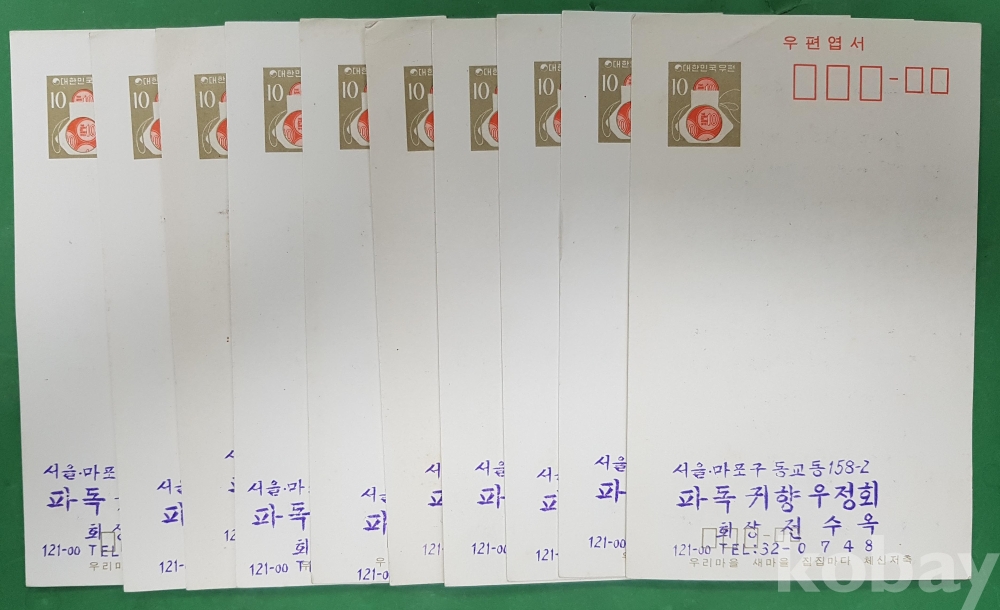 대한민국우편
10
대한민국우편
10
대한민국우편
10
대한민국우편
10
대한민국우편
10
대한민국우편
10
대한민국우편
10
대한민국우편
10
대한민국우편
10
우편엽서
대한민국우편
10
서울·마포
파독
121-00 TEL
우리마
서울
파
121-00
서울·마
파독
121-00 T
파
121-00
파
121-00
서울
파
121-00
파
121-00
서울
파
121-00
서울·마포구 동교동 158-2
파독 귀향우정회
회상 전수옥
121-00 TEL:32-0748
우리마을 새마을 집집마다 체신저축
kobay